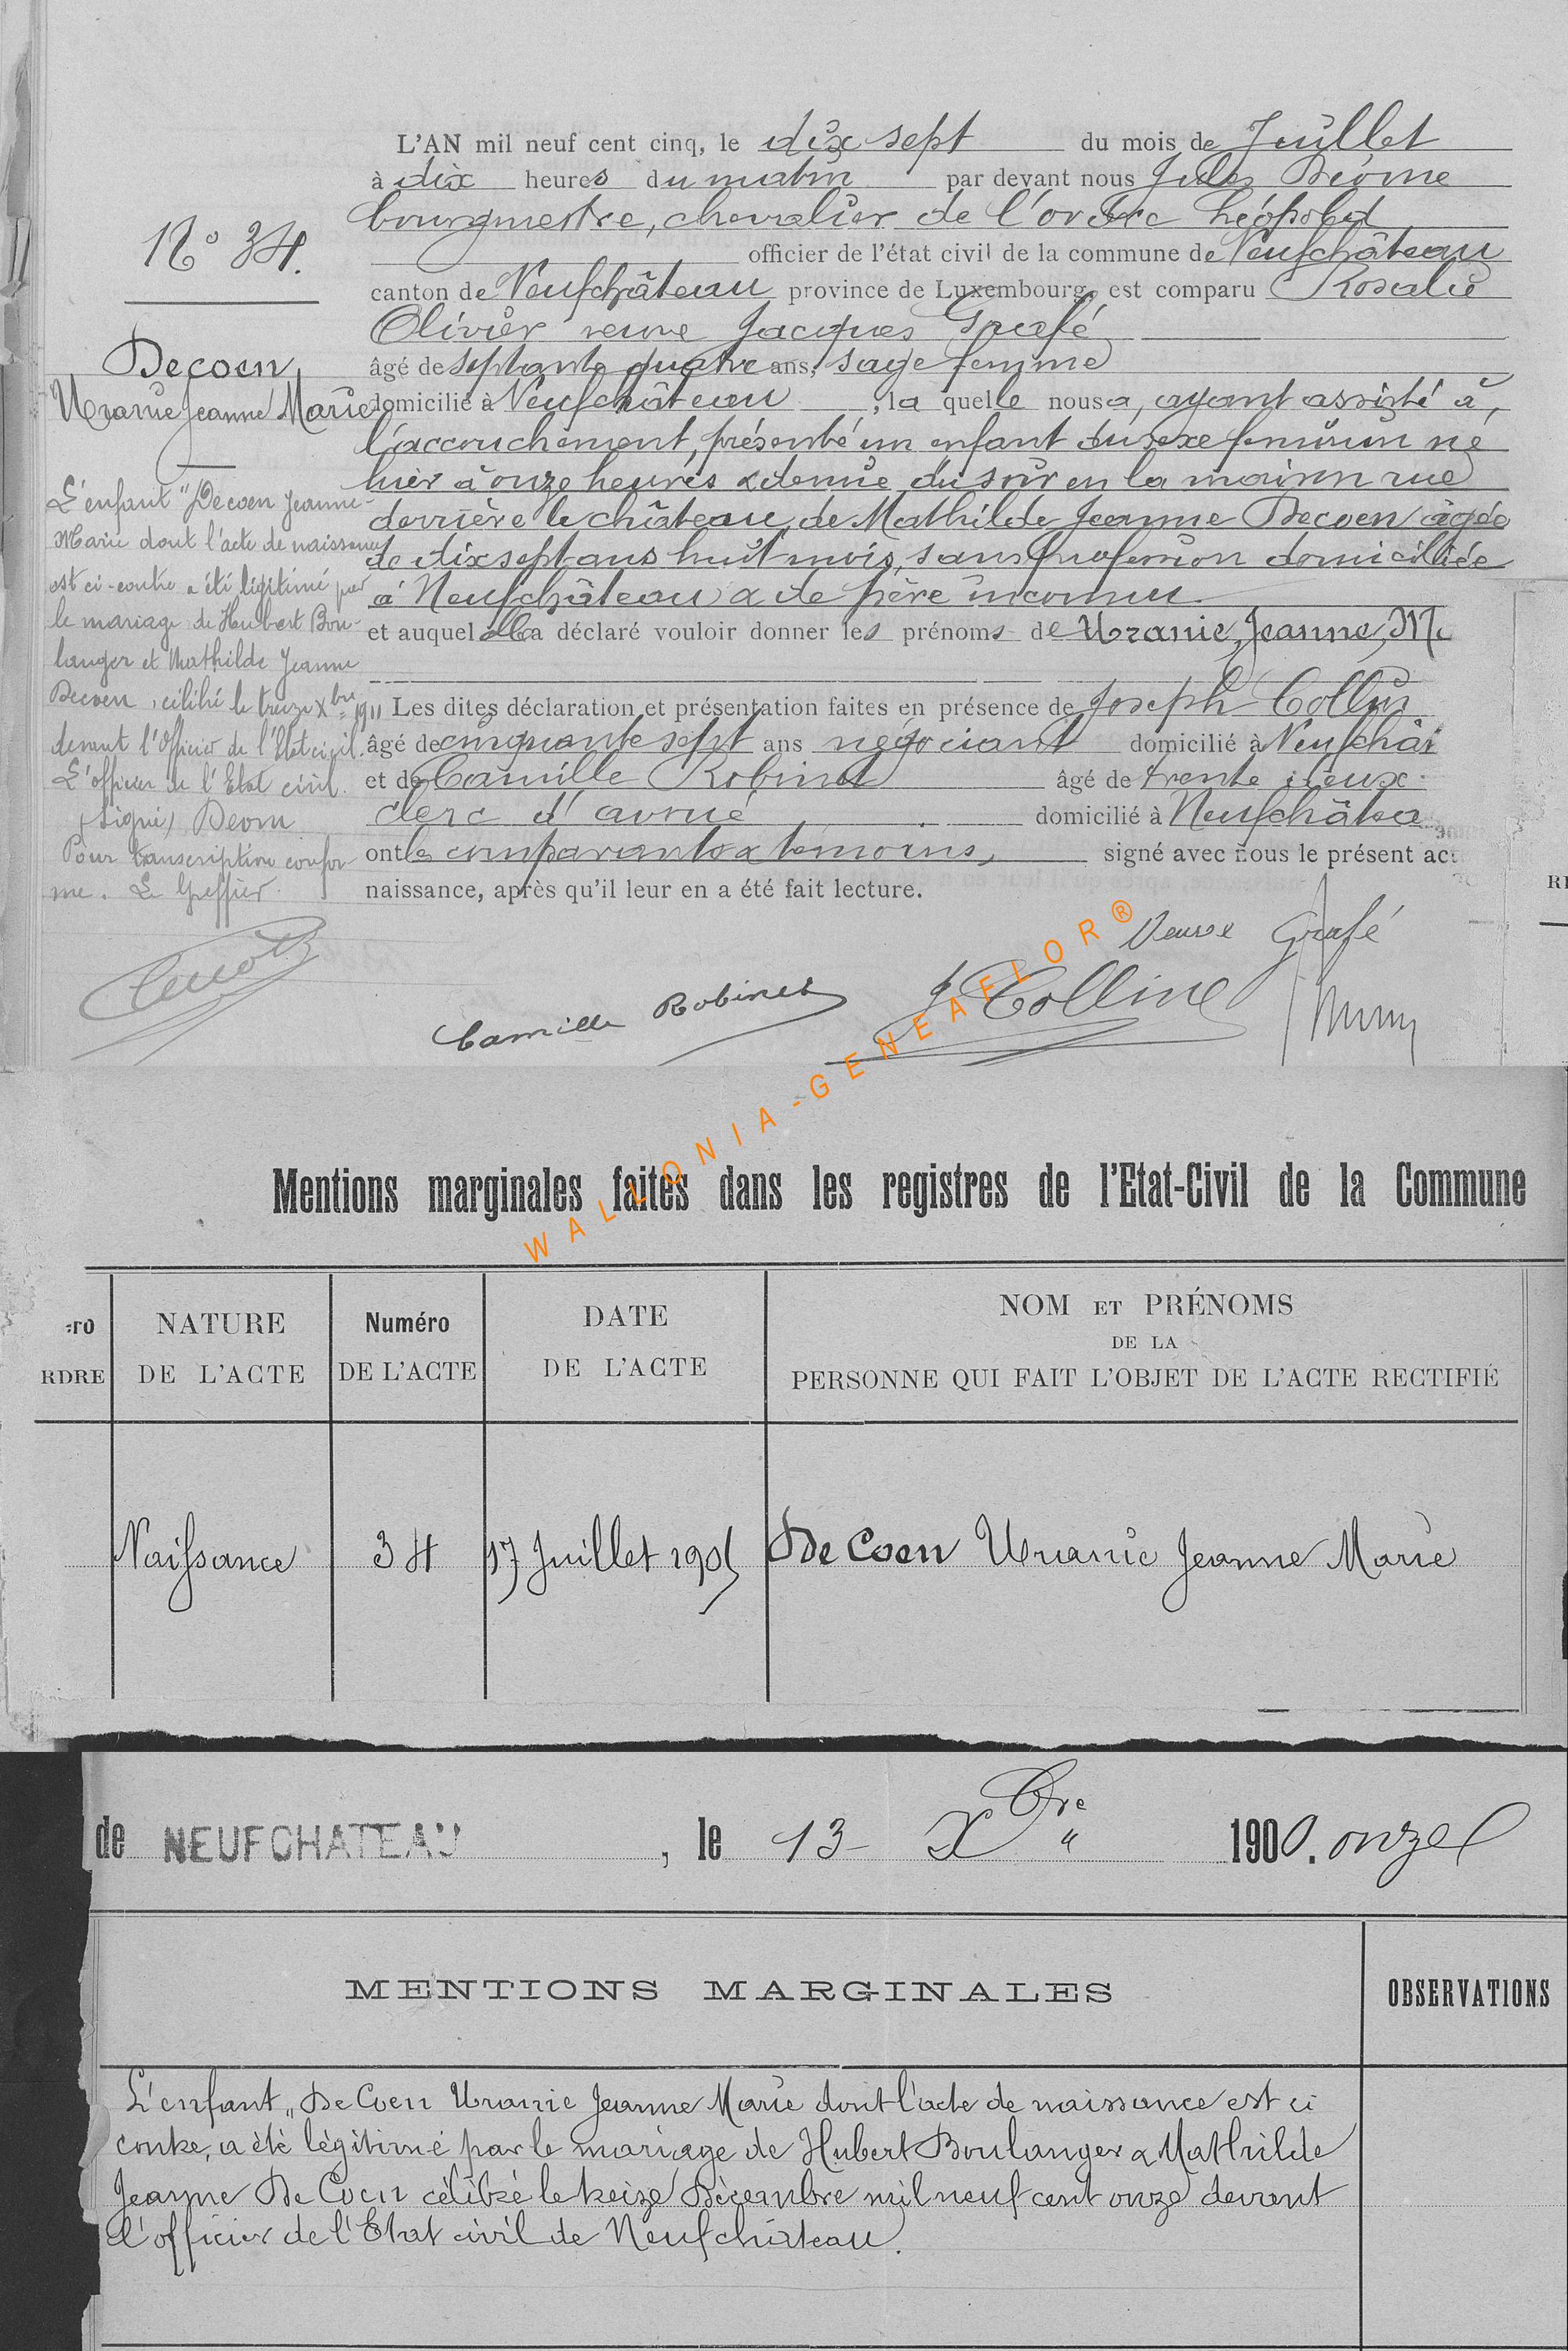 L'AN mil neuf cent cinq, le dix sept du mois de Juillet
à dix heures du matin par devant nous Jules Déome
bourgmestre, chevalier de l'ordre Léopold
officier de l'état civil de la commune de Neufchâteau
canton de Neufchâteau province de Luxembourg, est comparu Rosalie
Olivier veuve Jacques Grafé
âgé de septante quatre ans, sage femme
domicilié à Neufchâteau, la quelle nous a, ayant assisté à,
l'accouchement, présenté un enfant du sexe féminin né
hier à onze heures & demie du soir en la maison rue
derrière le château, de Mathilde Jeanne Decoen, âgée
de dix sept ans huit mois, sans profession domiciliée
à Neufchâteau & de père inconnu.
et auquel elle a déclaré vouloir donner les prénoms de Uranie, Jeanne, M.
Les dites déclaration et présentation faites en présence de Joseph Collin
âgé de cinquante sept ans négociant domicilié à Neufchât
et de Camille Robinet âgé de trente deux
clerc d'avoué domicilié à Neufchâtea
ont les comparants & témoins, signé avec nous le présent act
naissance, après qu'il leur en a été fait lecture.
N° 34.
Decoen
Uranie Jeanne Marie
L'enfant "Decoen Jeanne-
Marie dont l'acte de naissance
est ci-contre a été légitimé par
le mariage de Hubert Bou-
langer et Mathilde Jeanne
Decoen, célébré le treize Xbre 1911
devant l'Officier de l'Etat civil.
L'officier de l'Etat civil.
(signé) Deom
Pour transcription confor-
me. Le Greffier.
Veuve Grafé
Camille Robinet
J Collin
WALLONIA-GENEAFLOR®
Mentions marginales faites dans les registres de l'Etat-Civil de la Commune
RDRE
NATURE
DE L'ACTE
Numéro
DE L'ACTE
DATE
DE L'ACTE
NOM ET PRÉNOMS
DE LA
PERSONNE QUI FAIT L'OBJET DE L'ACTE RECTIFIÉ
Naissance 34 17 Juillet 1905 De Coen Uranie Jeanne Marie
de NEUFCHATEAU, le 13 Xbre " 1900. onze
MENTIONS MARGINALES
OBSERVATIONS
L'enfant „ De Coen Uranie Jeanne Marie dont l'acte de naissance est ci
contre, a été légitimé par le mariage de Hubert Boulanger & Mathilde
Jeanne De Coen célébré le treize Décembre mil neuf cent onze devant
l'officier de l'Etat civil de Neufchâteau.